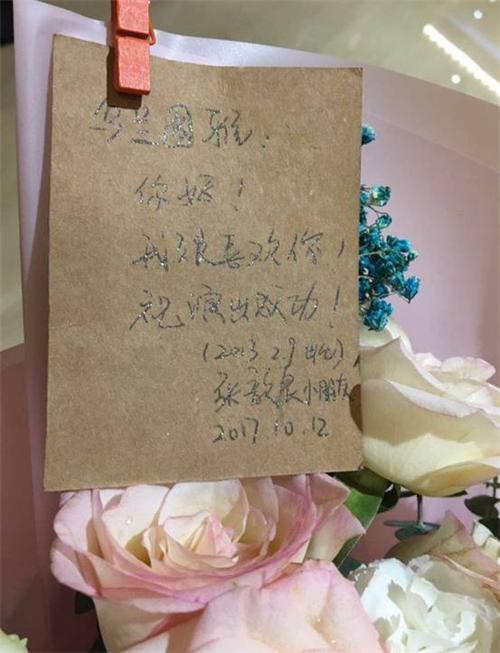 乌兰图雅：
你好！
我很喜欢你，
祝演出成功！
(2013.2.9出生)
张歆晨小朋友
2017.10.12